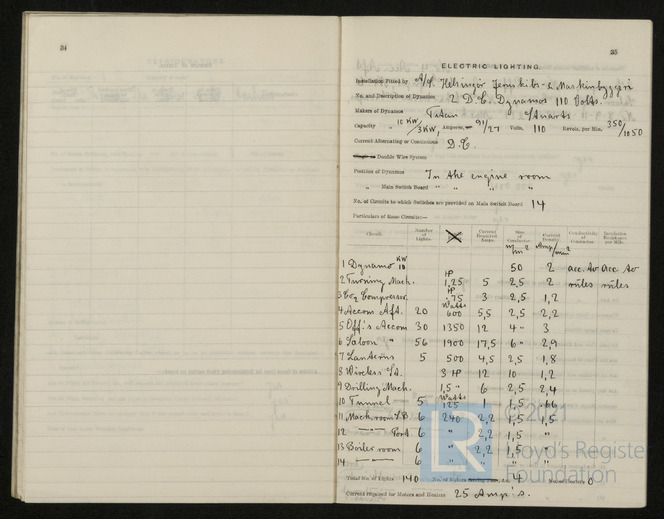 34
35
ELECTRIC LIGHTING.
Installation Fitted by A/S. Helsingör Jernskibs- & Maskinbyggeri
No. and Description of Dynamos 2 D.C. Dynamos 110 Volts.
Makers of Dynamos Titan
Capacity „ 10 KW/3KW, Amperes, 91/27 Volts, 110 Revols. per Min. 350/1050
Current Alternating or Continuous D.C.
Single or Double Wire System
Position of Dynamos In the engine room
„ Main Switch Board „ „ „ „
No. of Circuits to which Switches are provided on Main Switch Board 14
Particulars of these Circuits:—
Circuit. Number of Lights. Current Required Amps. Size of Conductor m/m² Current Density Amp/mm² Conductivity of Conductor. Insulation Resistance per Mile.
1 Dynamo KW 10 50 2 acc. to acc. to
2 Turning Mach. HP 1,25 5 2,5 2 rules rules
3 Compressor HP ,75 3 2,5 1,2
4 Accom Aft. 20 Watts 600 5,5 2,5 2,2
5 Off's Accom 30 1350 12 4 „ 3
6 Saloon „ 56 1900 17,5 6 „ 2,9
7 Lanterns 5 500 4,5 2,5 1,8
8 Wireless St. 3 HP 12 10 1,2
9 Drilling Mach. 1,5 „ 6 2,5 2,4
10 Tunnel 5 Watts 125 1 1,5
11 Mach room S.B. 6 240 2,2 1,5 1,5
12 —„— Port 6 „ 2,2 1,5 „
13 Boiler room 6 „ 2,2 1,5
14 —„— 6 „
Total No. of Lights 140 No. of Motors 4 0
Current required for Motors and Heaters 25 Amp's.
© 2021
LR
Lloyd's Register
Foundation